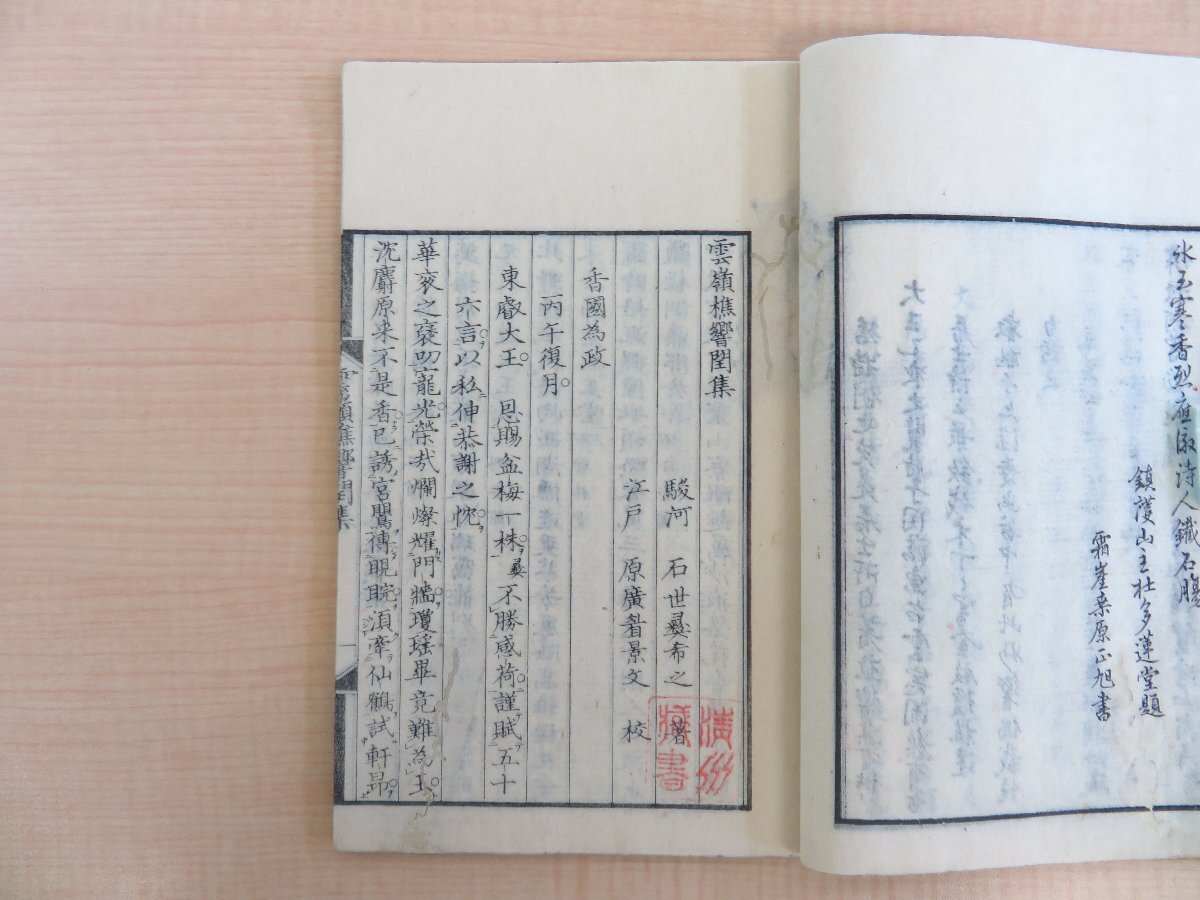 氷玉寒香烈應汲詩人鐵石腸
鎮護山主杜多蓮堂題
霜崖桒原正旭書
雲嶺樵響閏集
駿河 石世彛希之 著
江戸三 原廣䚮景文 校
香國為政
丙午復月
東叡大王 恩賜盆梅一株彛不勝感荷謹賦五十
六言以私伸恭謝之忱
華衮之褒叨寵光榮哉爛燦耀門牆瓊瑤畢竟難為玉
沈麝原来不是香已誘宮鸎傳睍睆須牽仙鶴試軒昂
雲嶺樵響閏集
藏書